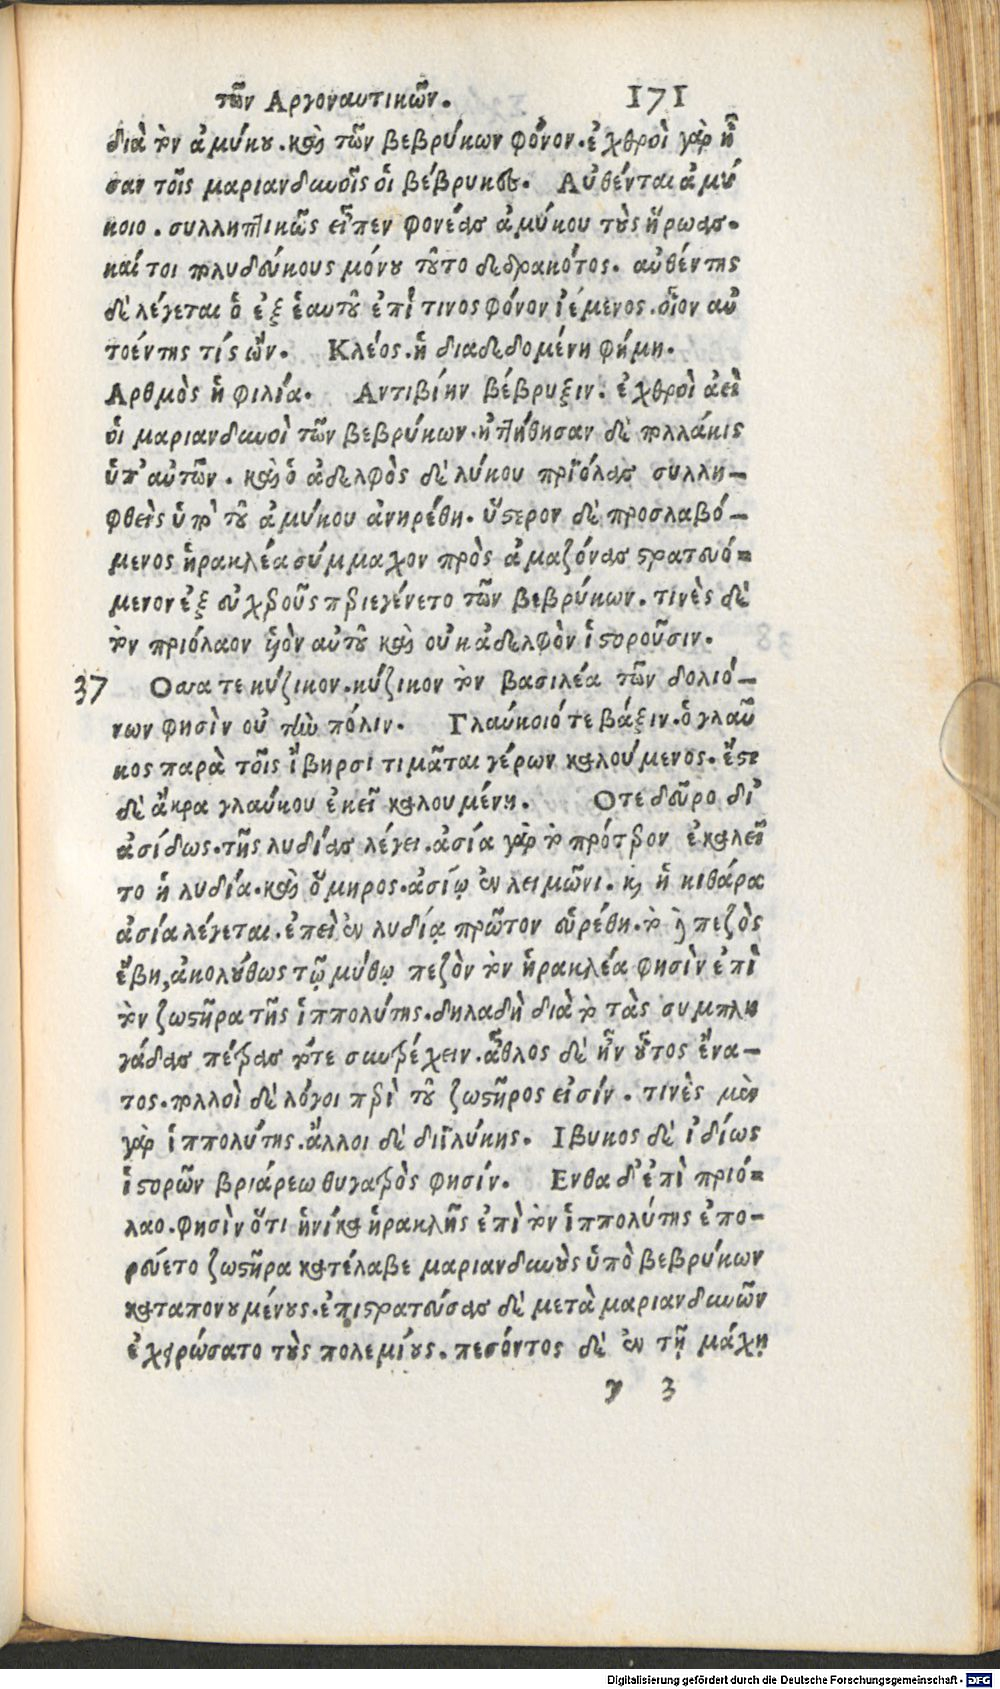 τῶν Αργοναυτικῶν. 171
διὰ τὸν ἀμύκου. καὶ τῶν βεβρύκων φόνον. ἐχθροὶ γὰρ ἦ
σαν τοῖς μαριανδυνοῖς οἱ βέβρυκες. Αὐθένται ἀμύ
κοιο. συλληπτικῶς εἶπεν φονέας ἀμύκου τοὺς ἥρωας.
καί τοι πολυδεύκους μόνου τοῦτο δεδρακότος. αὐθέντης
δὲ λέγεται ὁ ἐξ ἑαυτοῦ ἐπί τινος φόνον ἱέμενος. οἷον αὐ
τοέντης τίς ὤν. Κλέος. ἡ διαδεδομένη φήμη.
Αρθμὸς ἡ φιλία. Αντιβίην βέβρυξιν. ἐχθροὶ ἀεὶ
οἱ μαριανδυνοὶ τῶν βεβρύκων. ἡττήθησαν δὲ πολλάκις
ὑπ' αὐτῶν. καὶ ὁ ἀδελφὸς δὲ λύκου πριόλας συλλη-
φθεὶς ὑπὸ τοῦ ἀμύκου ἀνηρέθη. ὕστερον δὲ προσλαβό-
μενος ἡρακλέα σύμμαχον πρὸς ἀμαζόνας στρατευό=
μενον ἐξ εὐχεροῦς περιεγένετο τῶν βεβρύκων. τινὲς δὲ
τὸν πριόλαον υἱὸν αὐτοῦ καὶ οὐκ ἀδελφὸν ἱστοροῦσιν.
37 Οσα τε κύζικον. κύζικον τὸν βασιλέα τῶν δολιό-
νων φησὶν οὐ τὴν πόλιν. Γλαύκοιό τε βάξιν. ὁ γλαῦ
κος παρὰ τοῖς ἴβηρσι τιμᾶται γέρων καλούμενος. ἔστι
δὲ ἄκρα γλαύκου ἐκεῖ καλουμένη. Οτε δεῦρο δι'
ἀσίδως. τῆς λυδίας λέγει. ἀσία γὰρ τὸ πρότερον ἐκαλεῖ
το ἡ λυδία. καὶ ὅμηρος. ἀσίῳ ἐν λειμῶνι. καὶ ἡ κιθάρα
ἀσία λέγεται. ἐπεὶ ἐν λυδίᾳ πρῶτον εὑρέθη. τὸ δὲ πεζὸς
ἔβη, ἀκολούθως τῷ μύθῳ πεζὸν τὸν ἡρακλέα φησὶν ἐπὶ
τὸν ζωστῆρα τῆς ἱππολύτης. δηλαδὴ διὰ τὸ τὰς συμπλη
γάδας πέτρας τότε συντρέχειν. ἆθλος δὲ ἦν οὗτος ἔνα-
τος. πολλοὶ δὲ λόγοι περὶ τοῦ ζωστῆρος εἰσίν. τινὲς μὲν
γὰρ ἱππολύτης. ἄλλοι δὲ δηϊλύκης. Ιβυκος δὲ ἰδίως
ἱστορῶν βριάρεω θυγατρὸς φησίν. Ενθα δ' ἐπὶ πριό=
λαο. φησὶν ὅτι ἡνίκα ἡρακλῆς ἐπὶ τὸν ἱππολύτης ἐπο-
ρεύετο ζωστῆρα κατέλαβε μαριανδυνοὺς ὑπὸ βεβρύκων
καταπονουμένους. ἐπιστρατεύσας δὲ μετὰ μαριανδυνῶν
ἐχειρώσατο τοὺς πολεμίους. πεσόντος δὲ ἐν τῇ μάχῃ
y 3
Digitalisierung gefördert durch die Deutsche Forschungsgemeinschaft - DFG